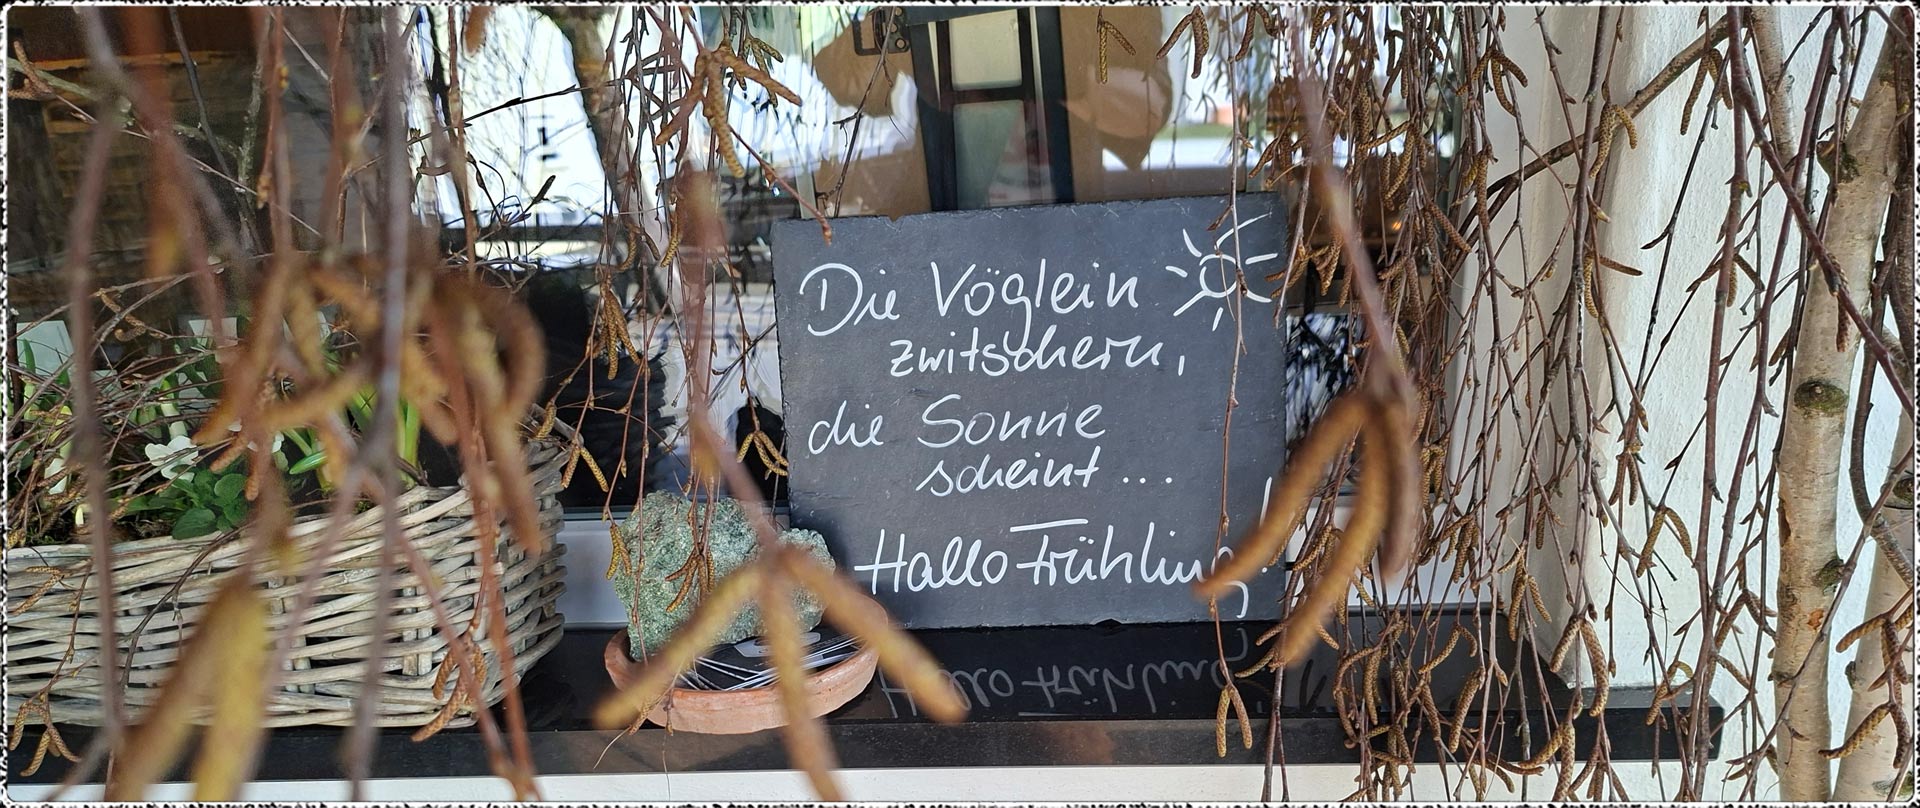 Die Vöglein
zwitschern,
die Sonne
scheint...
Hallo Frühling!